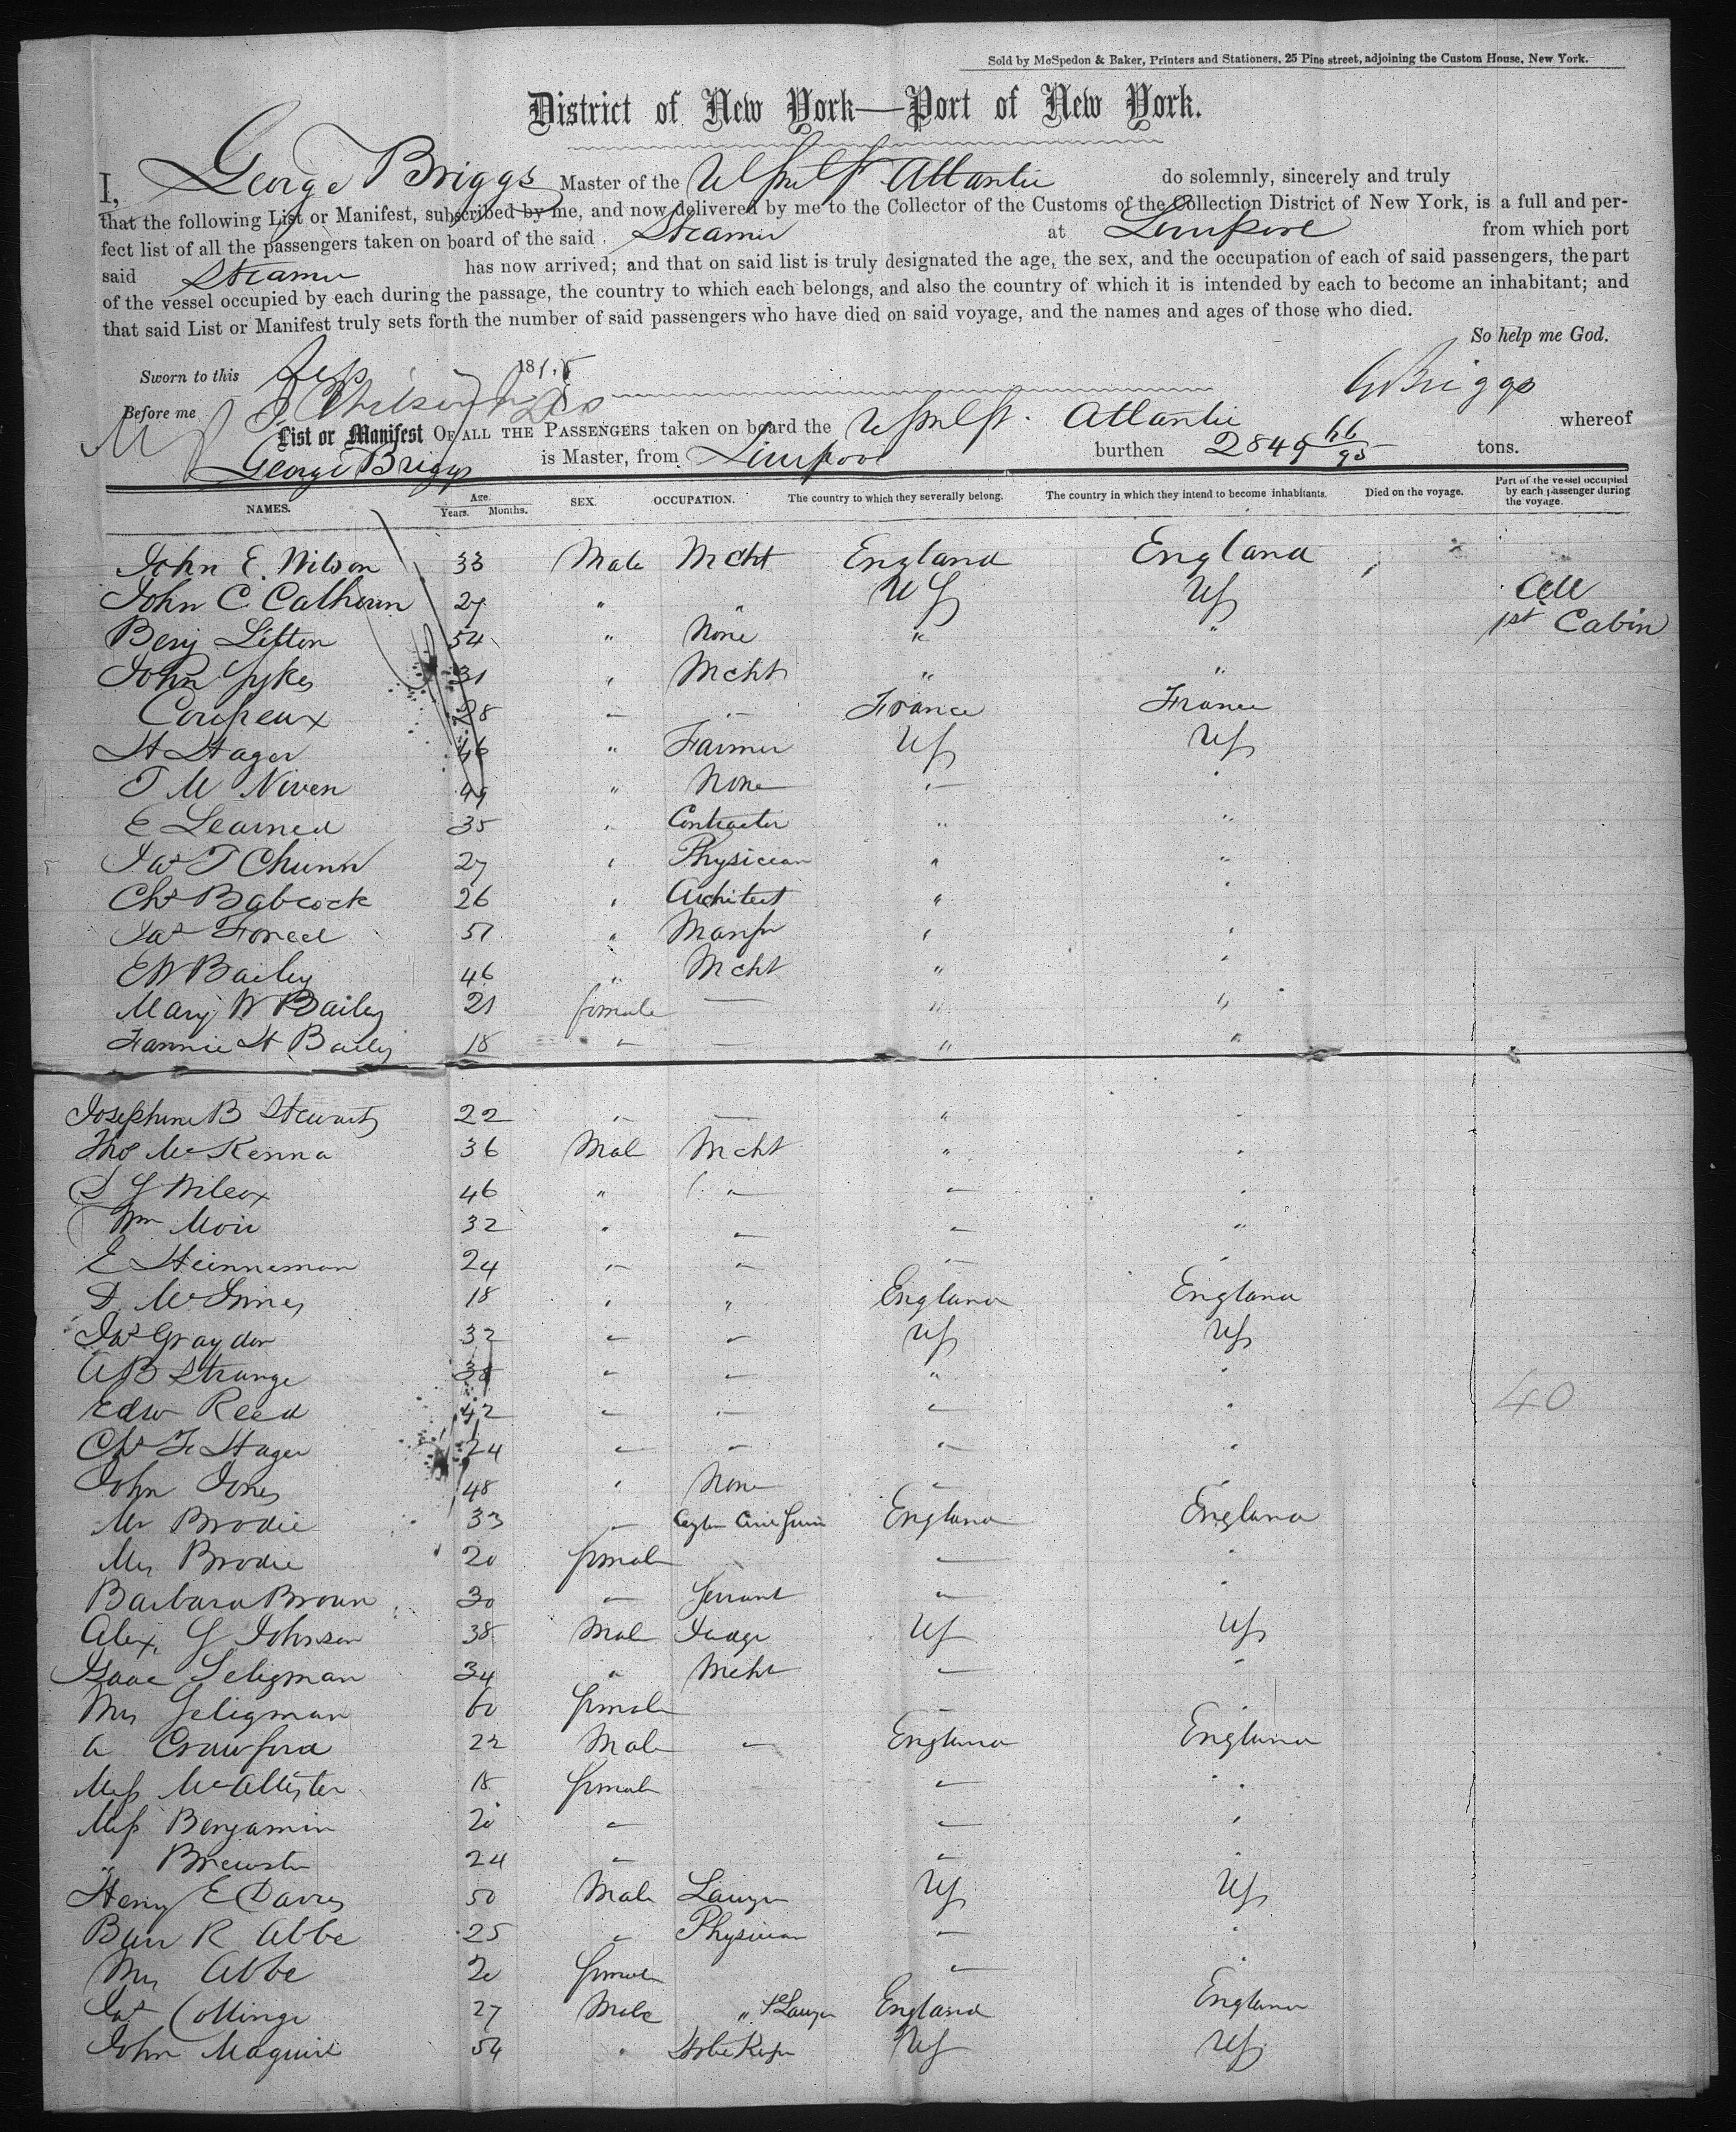 Sold by McSpedon & Baker, Printers and Stationers, 25 Pine street, adjoining the Custom House, New York.
District of New York—Port of New York.
I, George Briggs Master of the Atlantic do solemnly, sincerely and truly
that the following List or Manifest, subscribed by me, and now delivered by me to the Collector of the Customs of the Collection District of New York, is a full and per-
fect list of all the passengers taken on board of the said Steamer at Liverpool from which port
said Steamer has now arrived; and that on said list is truly designated the age, the sex, and the occupation of each of said passengers, the part
of the vessel occupied by each during the passage, the country to which each belongs, and also the country of which it is intended by each to become an inhabitant; and
that said List or Manifest truly sets forth the number of said passengers who have died on said voyage, and the names and ages of those who died.
So help me God.
Sworn to this 18 G Briggs
Before me
List or Manifest OF ALL THE PASSENGERS taken on board the Atlantic whereof
George Briggs is Master, from Liverpool burthen 2849 66/95 tons.
NAMES. Age. Years. Months. SEX. OCCUPATION. The country to which they severally belong. The country in which they intend to become inhabitants. Died on the voyage. Part of the vessel occupied by each passenger during the voyage.
John E. Wilson 33 Male Mcht England England
John C. Calhoun 27 " " US US All
Benj Litton 54 " None " " 1st Cabin
John Sykes 31 " Mcht " "
Coupeaux 28 " " France France
H Hager 46 " Farmer US US
T M Niven 49 " None " "
E Learned 35 " Contractor " "
Jas T Chunn 27 " Physician " "
Chs Babcock 26 " Architect " "
Jas 51 " Manfr " "
E W Bailey 46 " Mcht " "
Mary W Bailey 21 female — " "
Fannie H Bailey 18 " — " "
Josephine B Stewart 22 " — " "
Thos McKenna 36 Male Mcht " "
S G Wilcox 46 " " " "
Wm Moir 32 " " " "
E Heinneman 24 " " " "
D. 18 " " England England
Jas Graydon 32 " " US US
A B Strange 38 " " " "
Edw Reed 42 " " " " 40
Chs F Hager 24 " " " "
John Jones 48 " None " "
Mr Brodie 33 " Ceylon Civil England England
Mrs Brodie 20 female " "
Barbara Brown 30 " Servant " "
Alex. G Johnson 38 Male Judge US US
Isaac Seligman 34 " Mcht " "
Mrs Seligman 60 female " "
A Crawford 22 Male " England England
Miss McAllister 18 female " "
Miss Benjamin 20 " " "
" Brewster 24 " " "
Henry E Davies 50 Male Lawyer US US
Burr R Abbe 25 " Physician " "
Mrs Abbe 20 female " "
Jas Collinge 27 Male " Lawyer England England
John Maguire 54 " US US